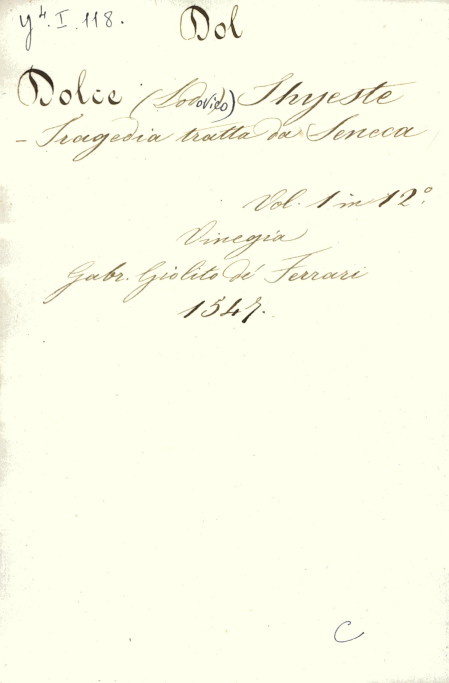 y⁴.I.118.
Dol
Dolce (Lodovico) Thyeste
- Tragedia tratta da Seneca
Vol. 1 in 12°.
Vinegia
Gabr. Giolito de' Ferrari
1547.
C